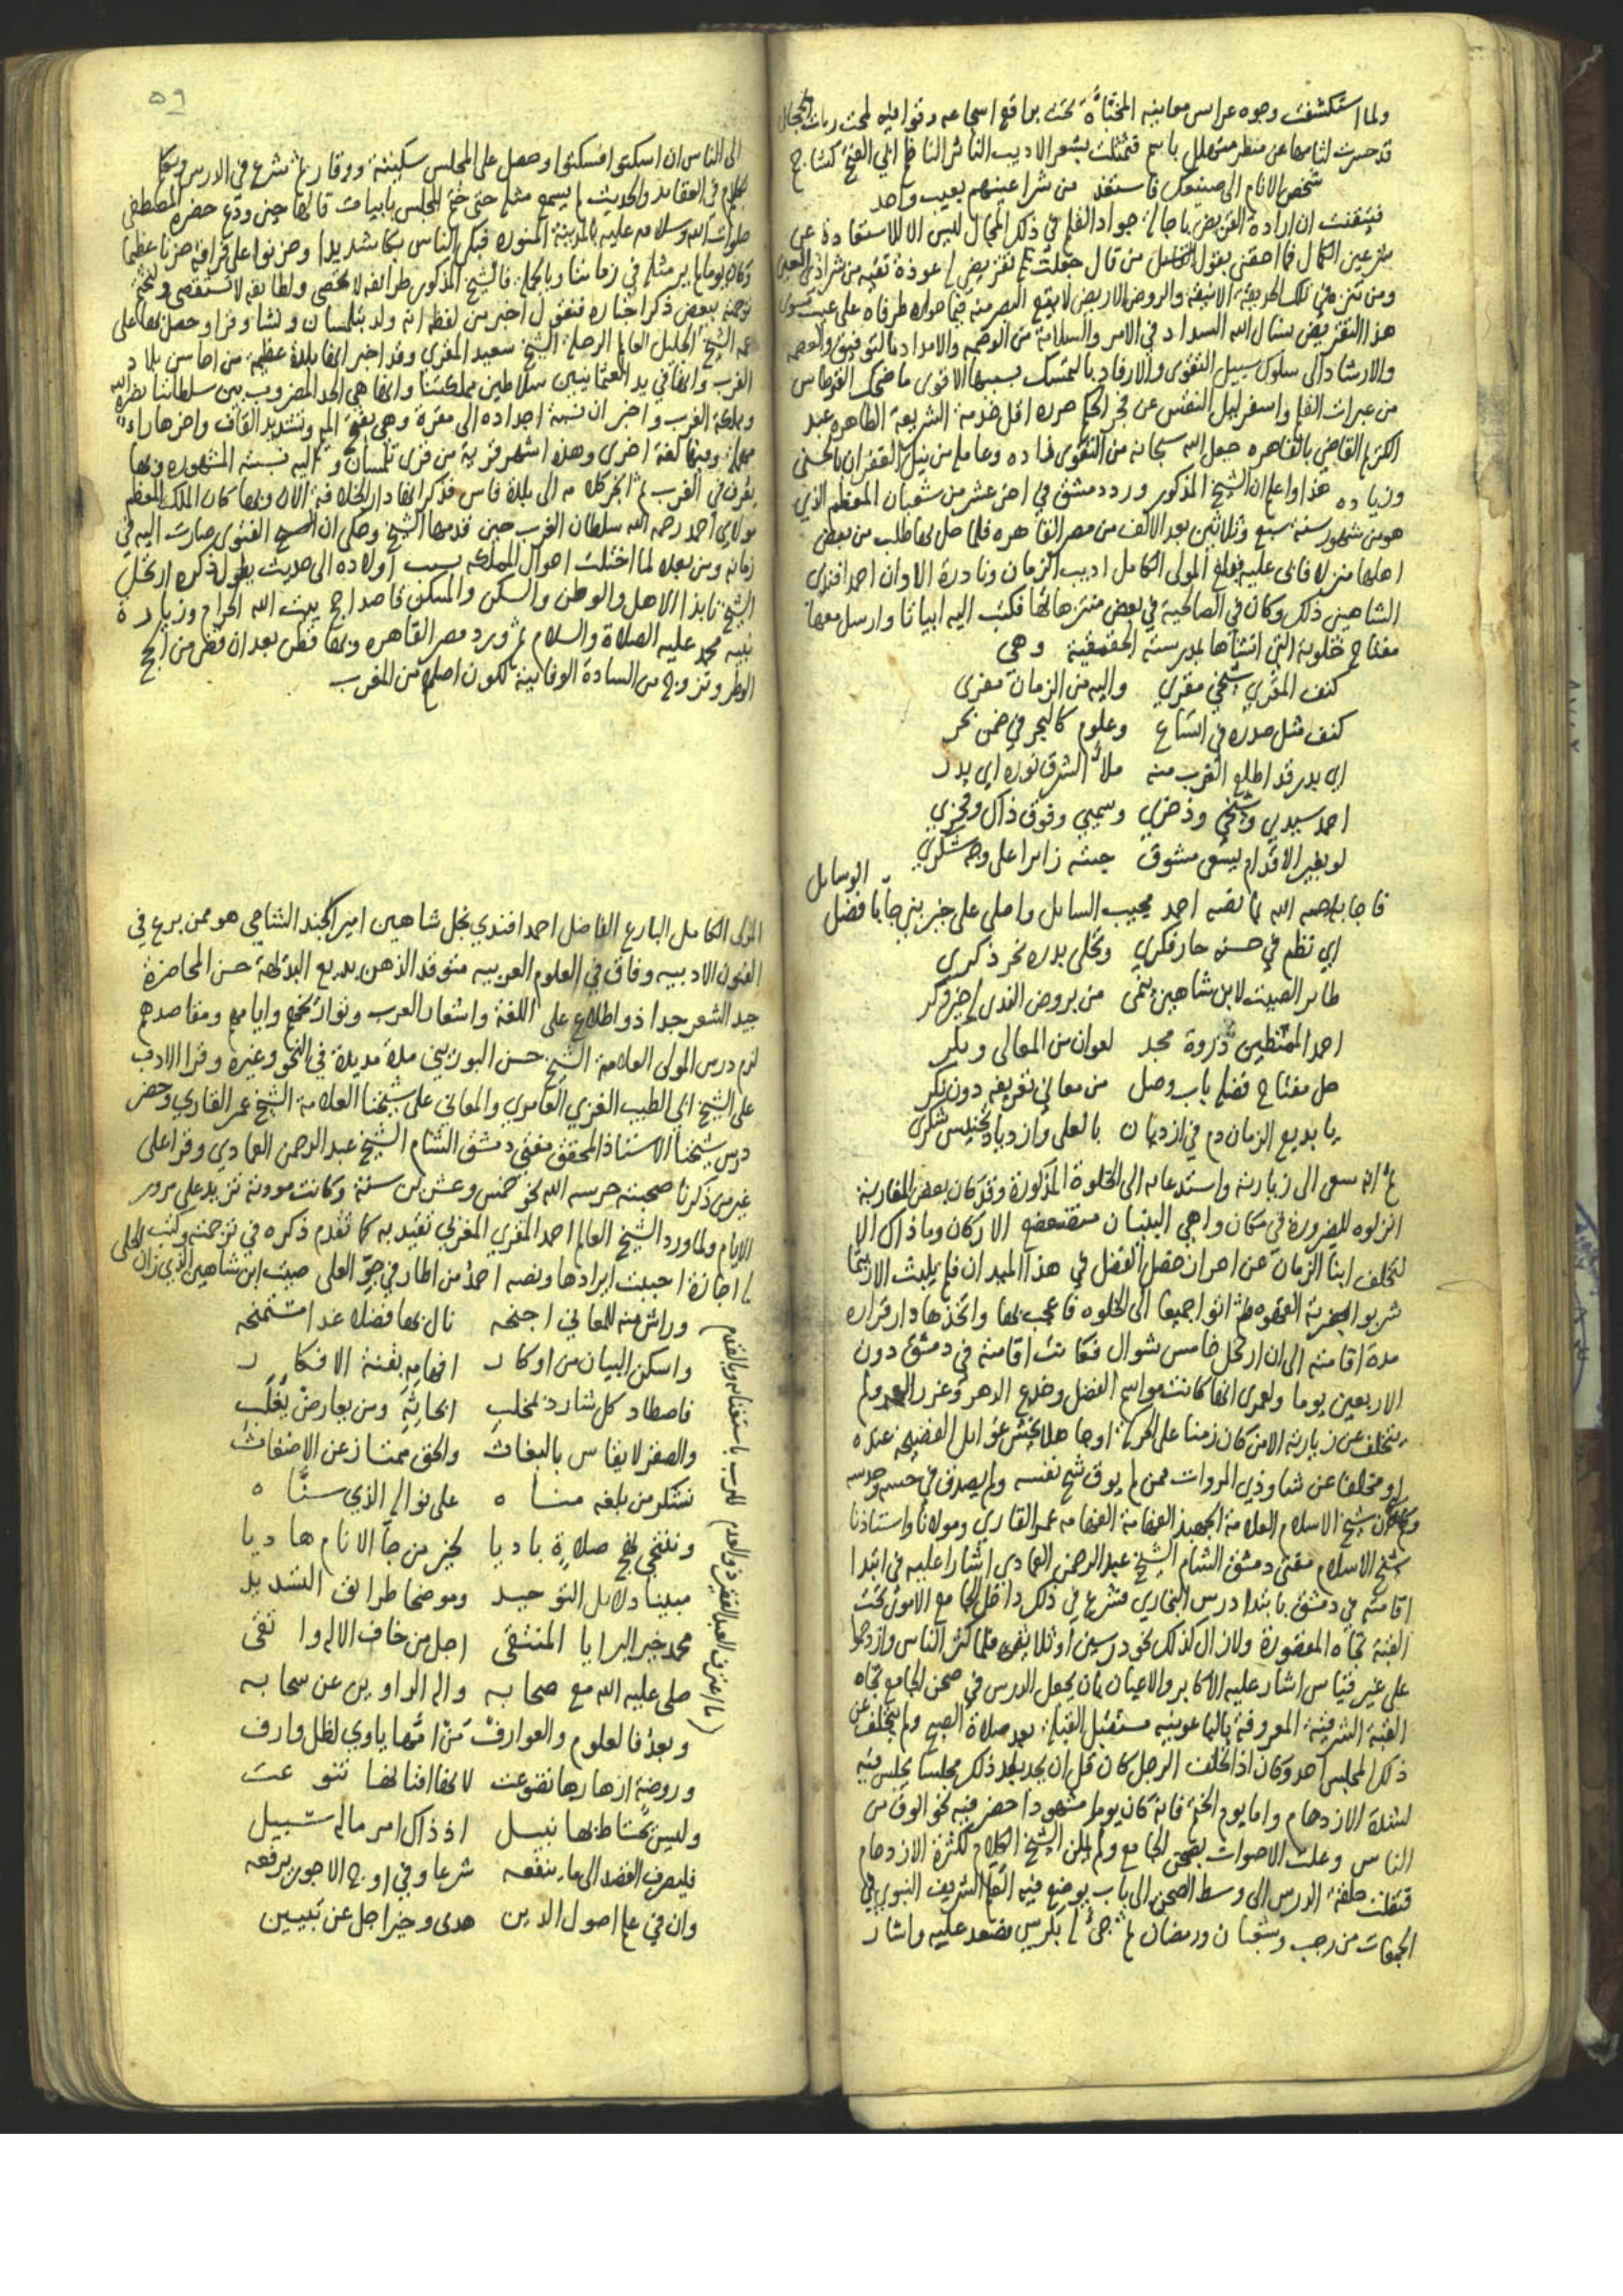 ولما استكشفت وجوه عرايس معانيه المختبأة تحت براقع اسجاعه وقوافيه لمحت ربات الجمال
قد حسرت لثامها عن منظر متهلل باسم فتمثلت بشعر الاديب الناثر الناظم ابي الفتح كشاجم
شخص الانام الى جمالك فاستعذ من شر اعينهم بعيب واحد
فتيقنت ان ارادة التقريض باجالة جواد القلم في ذلك المجال ليس الا للاستعاذة عن
شر عين الكمال فما احقني بقول من قال جعلت تقريضي له عوذة تقيه من شر اذى العين
ومن تنزه في تلك الحديقة الانيقة والروض الاريض لا يقع البصر منه فيما حواه طرفاه على عيب سوى
هذا التقريض نسال الله السداد في الامر والسلامة من الوصمه والامداد بالتوفيق والعصمه
والارشاد الى سلوك سبيل التقوى والارفاد بالتمسك بسببها الاقوى ما ضحك القرطاس
من عبرات القلم واسفر ليل النفس عن فجر الحكم حرره اقل خدمة الشريعة الطاهره عبد
الكريم القاضي بالقاهره جعل الله سبحانه من التقوى زاده وعامله من نيل الغفران بالحسنى
وزياده هذا واعلم ان الشيخ المذكور ورد دمشق في احى عشر من شعبان المعظم الذي
هو من شهور سنة سبع وثلاثين بعد الالف من مصر القاهره فلما حل بها طلب من بعض
اهلها منزلا فاتى عليه فبلغ المولى الكامل اديب الزمان ونادرة الاوان احمد افندي
الشاهيني ذلك وكان في الصالحية في بعض منتزهاتها فكتب اليه ابياتا وارسل معها
مفتاح خلوته التي انشاها بمدرسته الجقمقية وهي
كنف المقري شيخي مقري واليه من الزمان مفرى
كنف مثل صدره في اتساع وعلوم كالبحر في ضمن بحر
اي بدر قد اطلع الغرب منه ملأ الشرق نوره اي بدر
احمد سيدي وشيخي وذخري وسميي وفوق ذاك وفخري
لو بغير الاقدام يسعى مشوق جئته زايرا على وجه شكري
فاجابه رحمه الله بما نصه احمد مجيب السايل واصلي على خير نبي جا بافضل الوسايل
اي نظم في حسنه حار فكري وتحلى بدره نحر ذكري
طاير الصيت لابن شاهين ينمى من بروض الندى له خير وكر
احمد الممتطين ذروة مجد لعوان من المعالي وبكر
حل مفتاح فضله باب وصل من معاني تعريفه دون نكر
يا بديع الزمان دم في ازديان بالعلى وازدياد تجنيس شكري
ثم انه سعى الى زيارته واستدعائه الى الخلوة المذكورة وقد كان بعض المغاربة
انزلوه للضرورة في مكان واهي البنيان متضعضع الاركان وما ذاك الا
لتخلف ابنا الزمان عن احراز خصل الفضل في هذا الميدان فلم يلبث الا ريثما
شربوا القهوة ثم اتوا جميعا الى الخلوه فاعجب بها واتخذها دار قراره
مدة اقامته الى ان ارتحل خامس شوال فكانت اقامته في دمشق دون
الاربعين يوما ولعمرى انها كانت مواسم الفضل وخدع الدهر وغرر العمر ولم
يتخلف عن زيارته الا من كان زمنا على الحركة او جاهلا يخش غوايل الفضيحه عنده
او متخلفا عن شاو ذوي المروات ممن لم يوق شح نفسه ولم يصدق في حسه وحدسه
وكان شيخ الاسلام العلامة الجهبذ الفهامة عمر القاري ومولانا واستاذنا
شيخ الاسلام مفتي دمشق الشام الشيخ عبد الرحمن العمادي اشارا عليه في ابتدا
اقامته في دمشق بابتدا درس البخاري فشرع في ذلك داخل الجامع الاموي تحت
القبة تجاه المقصورة ولا زال كذلك نحو درسين او ثلاثة فلما كثر الناس وازدحموا
على غير قياس اشار عليه الاكابر والاعيان بان يجعل الدرس في صحن الجامع تجاه
القبة الشرقية المعروفة بالباعونيه مستقبل القبلة بعد صلاة الصبح ولم يتخلف عن
ذلك المجلس احد وكان اذا تخلف الرجل كان قل ان يجد بعد ذلك مجلسا يجلس فيه
لشدة الازدحام واما يوم الختم فانه كان يوما مشهودا حضر فيه نحو الوف من
الناس وعلت الاصوات بصحن الجامع ولم يمكن الشيخ الكلام لكثرة الازدحام
فنقلت حلقة الدرس الى وسط الصحن الى باب يوضع فيه العلم الشريف النبوي في
الجمعات من رجب وشعبان ورمضان ثم جيئ له بكرسي فصعد عليه واشار
٥٩
الى الناس ان اسكتوا فسكتوا وحصل على المجلس سكينة ووقار ثم شرع في الدرس وتكلم
بكلام في العقايد والحديث لم يسمع مثله حتى ختم المجلس بابيات قالها حين ودع حضرة المصطفى
صلوات الله وسلامه عليه بالمدينة المنوره فبكى الناس بكا شديدا وحزنوا على فراقه حزنا عظيما
وكان يوما لم ير مثله في زماننا وبالجملة فالشيخ المذكور طرائفه لا تحصى ولطايفه لا تستقصى ولنختم
ترجمته ببعض ذكر اخباره فنقول اخبر من لفظه انه ولد بتلمسان ونشا وقرا وحصل بها على
عمه الشيخ الجليل العالم الرحلة الشيخ سعيد المقري وقد اخبر انها بلدة عظيمة من احاسن بلاد
الغرب وانها في يد العثمانيين سلاطين مملكتنا وانها هي الحد المضروب بين سلطاننا نصره الله
ومملكة الغرب واخبر ان نسبة اجداده الى مقرة وهي بفتح الميم وتشديد القاف واخرها راء
مهملة وفيها لغة اخرى وهذه اشهر قرية من قرى تلمسان واليه نسبته المشهوره وبها
يعرف في الغرب ثم انجر كلامه الى بلدة فاس فذكر انها دار الخلافة الان وبها كان الملك المعظم
مولاي احمد رحمه الله سلطان الغرب حين قدمها الشيخ وحكى ان الفتوى صارت اليه في
زمانه ومن بعده لما اختلت احوال المملكه بسبب اولاده الى حديث يطول ذكره ارتحل
الشيخ نابذا الاهل والوطن والسكن والمسكن قاصدا حج بيت الله الحرام وزيارة
نبيه محمد عليه الصلاة والسلام ثم ورد مصر القاهره وبها قطن بعد ان قضى من الحج
الوطر وتزوج من السادة الوفايية لكون اصلهم من المغرب
المولى الكامل البارع الفاضل احمد افندي نجل شاهين امير الجند الشامي هو ممن برع في
الفنون الادبيه وفاق في العلوم العربيه متوقد الذهن بديع البداهة حسن المحاضرة
جيد الشعر جدا ذو اطلاع على اللغة واشعار العرب ونوادرهم وايامهم ومقاصدهم
لزم درس المولى العلامة الشيخ حسن البوريني مدة مديدة في النحو وغيره وقرا الادب
على الشيخ ابي الطيب الغزي العامري والمعاني على شيخنا العلامة الشيخ عمر القاري وحضر
درس شيخنا الاستاذ المحقق مفتي دمشق الشام الشيخ عبد الرحمن العمادي وقرا على
غير من ذكرنا صحبته حرسه الله نحو خمس وعشرين سنة وكانت مودته تزيد على مرور
الايام ولما ورد الشيخ العالم احمد المقري المغربي تقيد به كما تقدم ذكره في ترجمته وكتب له
اجازة احببت ايرادها ونصه احمد من اطار في جو العلى صيت ابن شاهين الذي زان الحلى
وراش منه للمعاني اجنحه نال بها فضلا غدا مستمنحه
واسكن البيان من اوكار افهامه بقنة الافكار
فاصطاد كل شارد بمخلب ابحاثه ومن يعارض يغلب
والصقر لا يقاس بالبغاث والحق ممتاز عن الاضغاث
نشكر من بلغه مناه على نواله الذي سناه
وننتحي نهج صلاة باديا لخير من جا الانام هاديا
مبينا دلايل التوحيد وموضحا طرائق التسديد
محمد خير البرايا المنتقى اجل من خاف الاله واتقى
صلى عليه الله مع صحابه واله الراوين عن سحابه
وبعد فالعلوم والعوارف من امها ياوي لظل وارف
وروضة ازهارها تضوعت لانها افنانها تنوعت
وليس يحتاط بها نبيل اذ ذاك امر ماله سبيل
فليصرف القصد الى ما ينفعه شرعا وفي اوج الاجور يرفعه
وان في علم اصول الدين هدى وخيرا جل عن تبيين